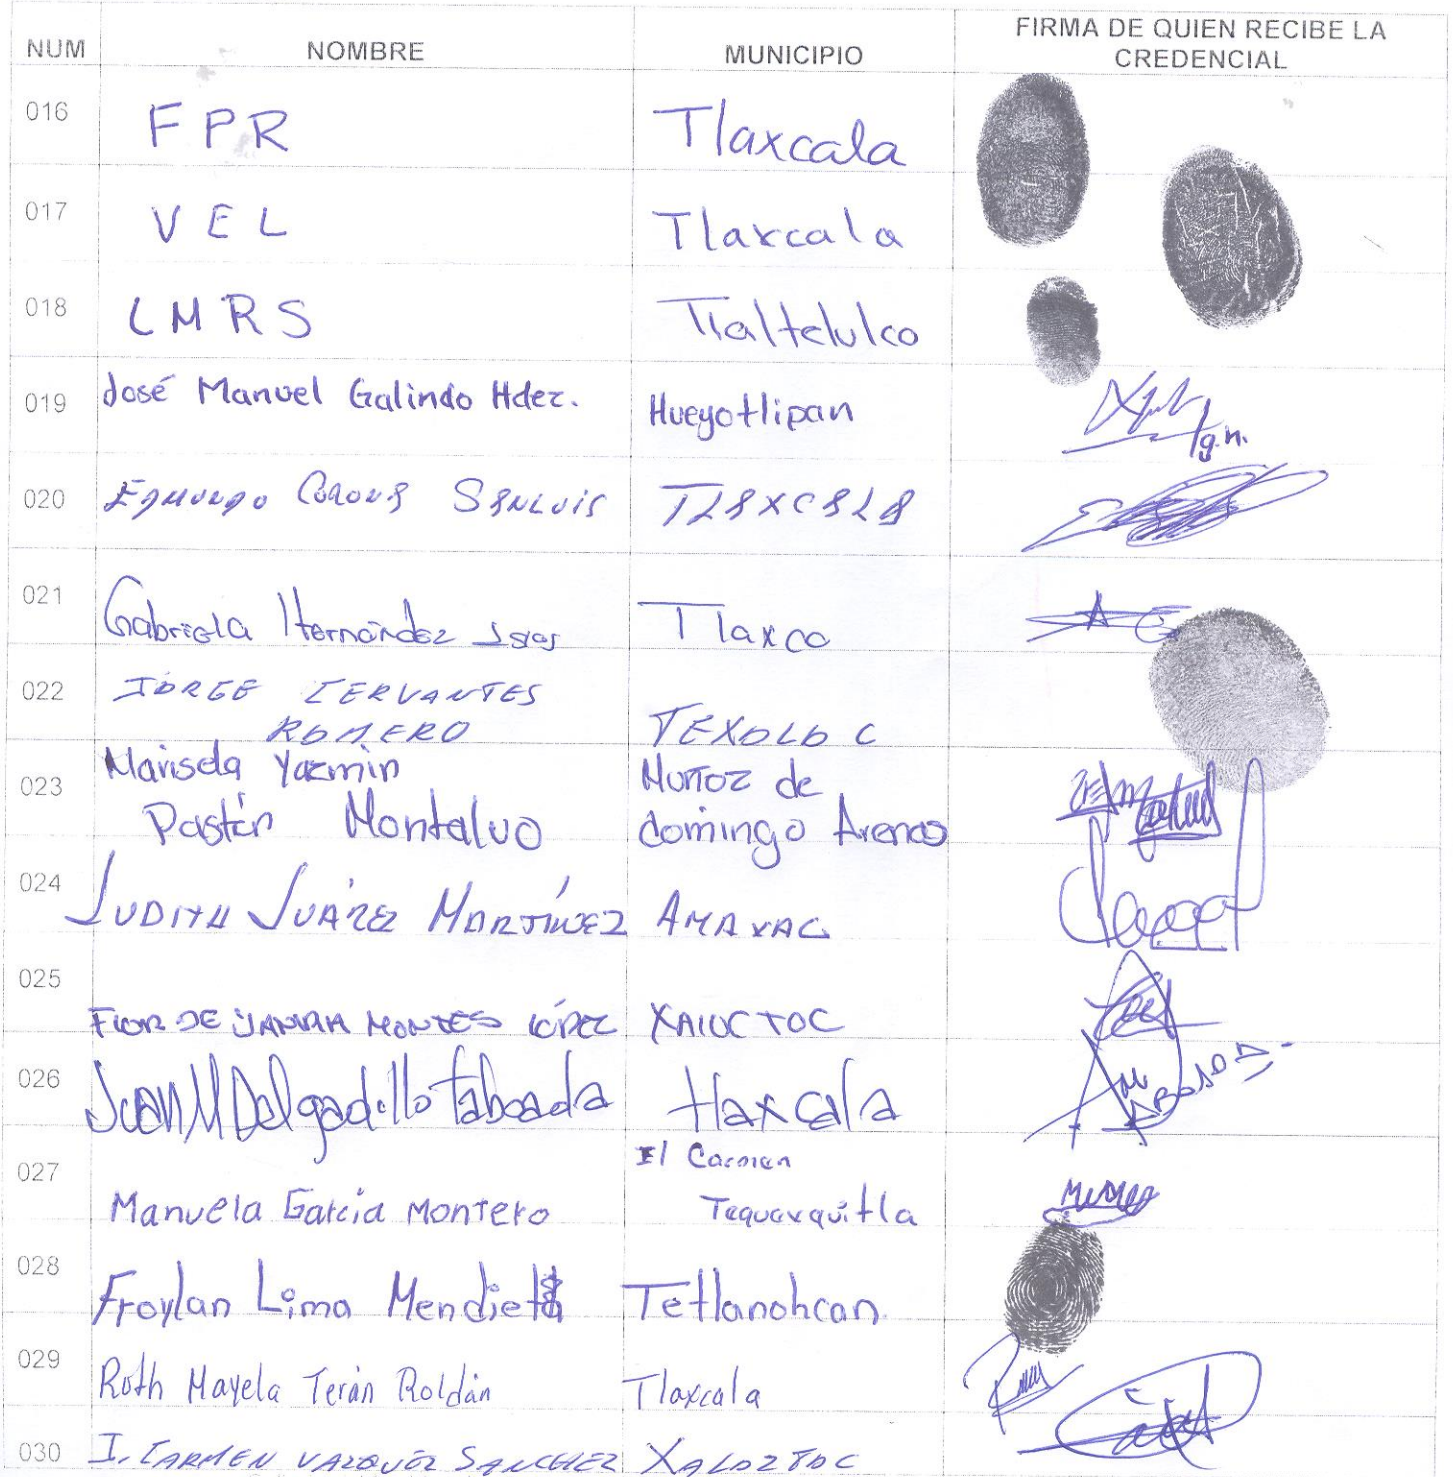 NUM NOMBRE MUNICIPIO FIRMA DE QUIEN RECIBE LA
CREDENCIAL
016 FPR Tlaxcala
017 VEL Tlaxcala
018 LMRS Tlaltelulco
019 José Manuel Galindo Hdez. Hueyotlipan
g.n.
020 EDMUNDO CORONA SANLUIS TLAXCALA
021 Gabriela Hernández Islas Tlaxco
022 JORGE CERVANTES
ROMERO TEXOLOC
023 Marisela Yazmin Muñoz de
Pastén Montalvo domingo Arenas
024 JUDITH JUÁREZ MARTÍNEZ AMAXAC
025 FLOR DE MONTES LÓPEZ XALOCTOC
026 Juan M Delgadillo Taboada tlaxcala
027 El Carmen
Manuela García Montero Tequexquitla
028 Froylan Lima Mendieta Tetlanohcan.
029 Ruth Mayela Terán Roldán Tlaxcala
030 J. CARMEN VAZQUEZ SANCHEZ XALOZTOC